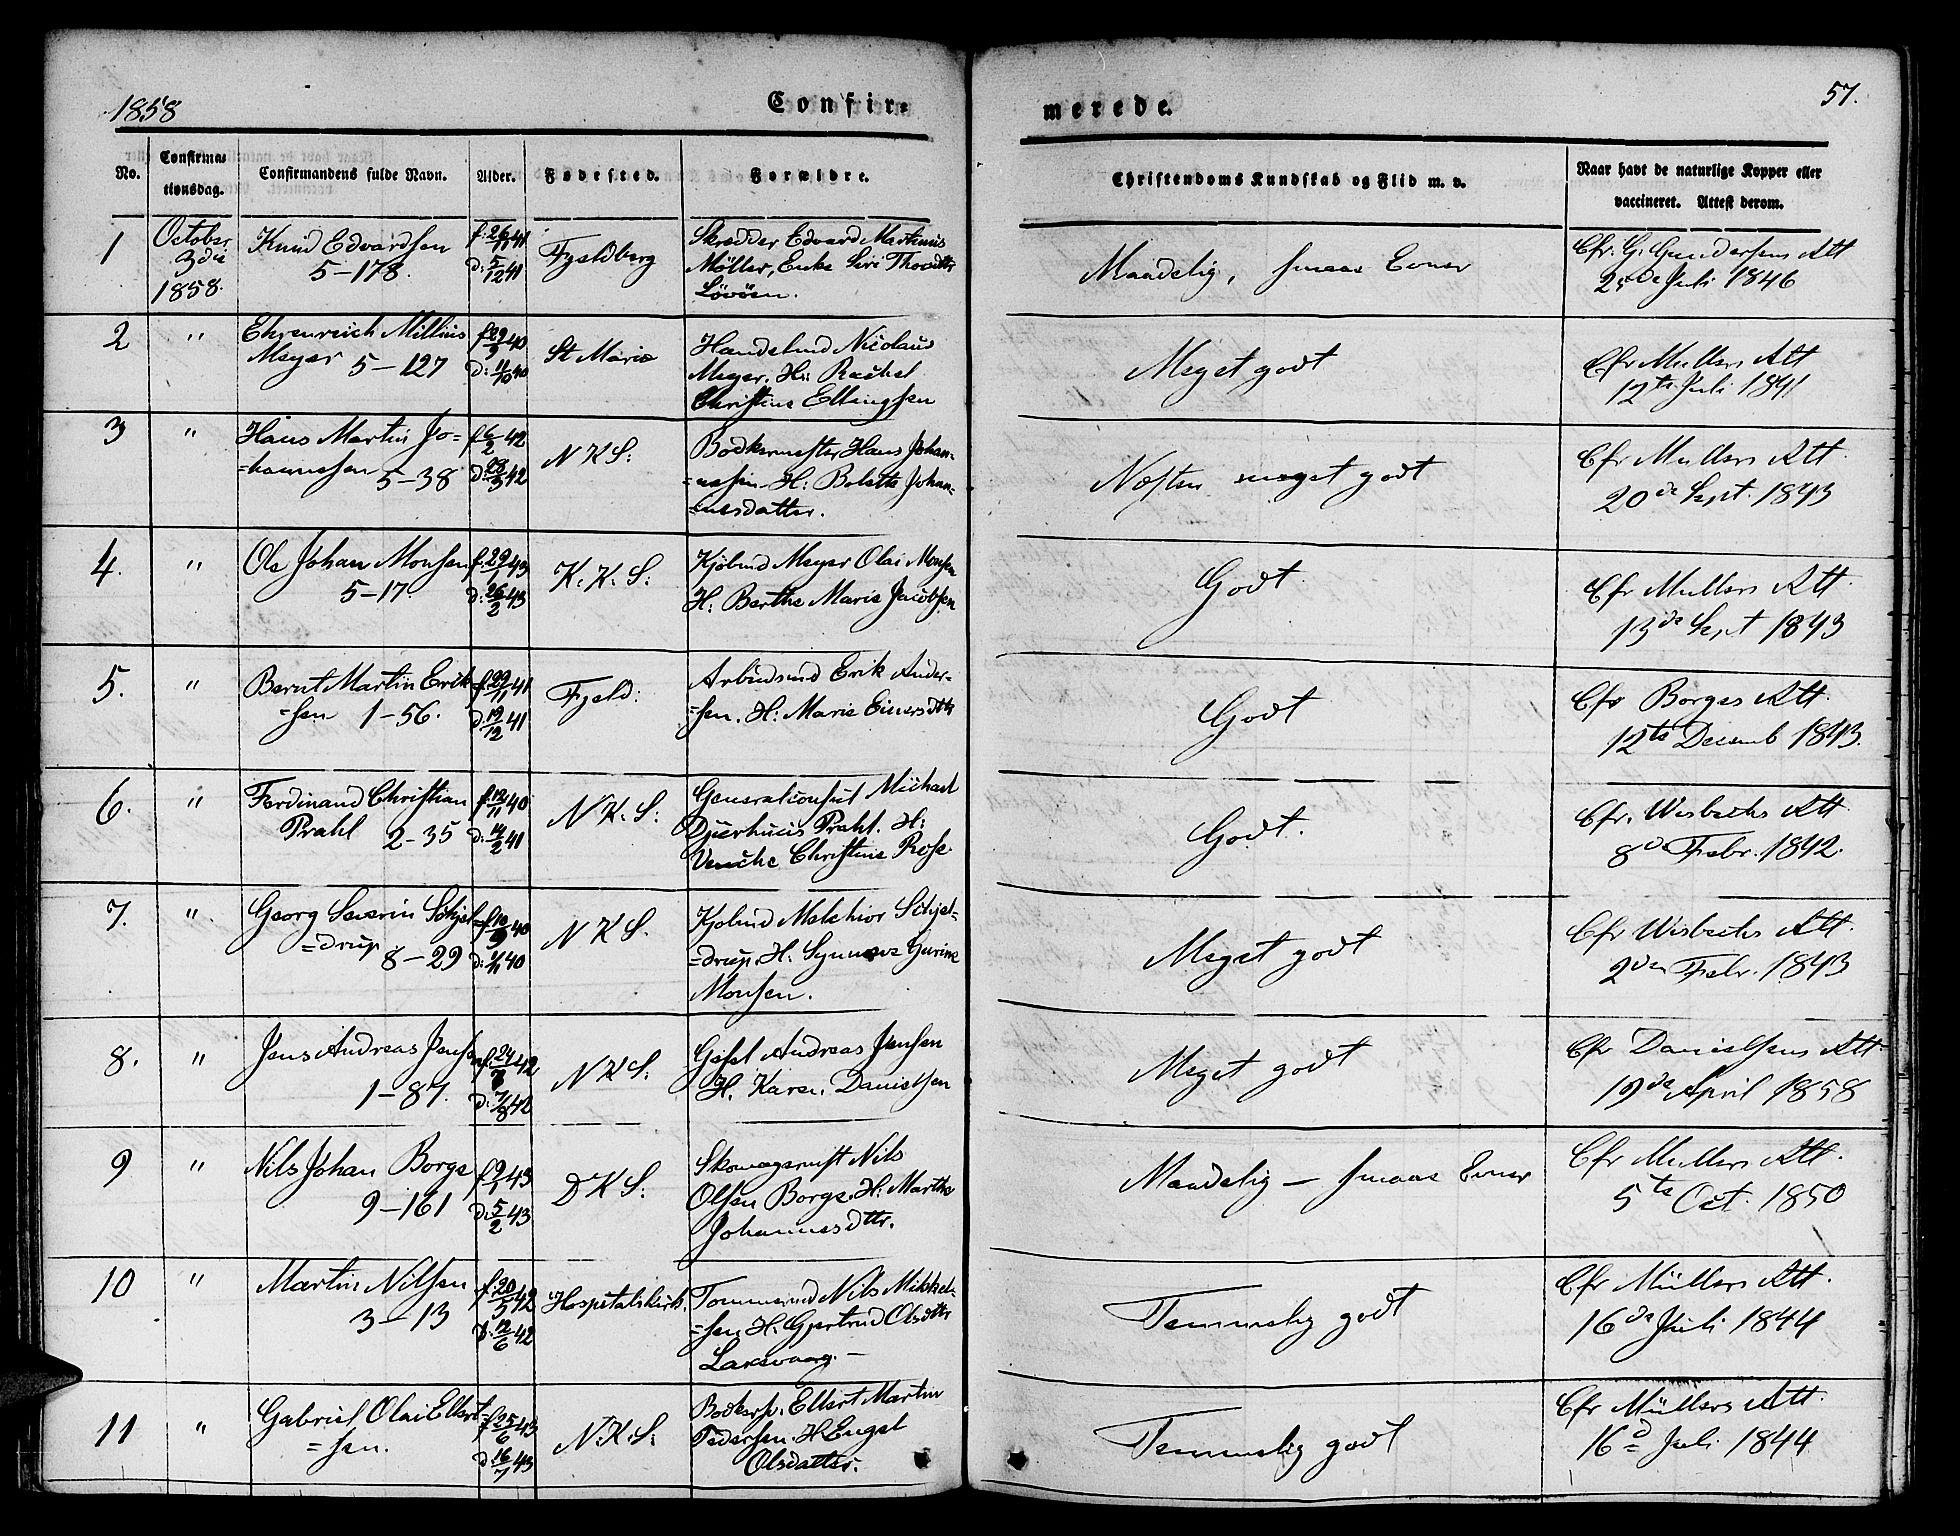 1858
Confir=
merede.
57.
No.
Confirma=
tionsdag.
Confirmandens fulde Navn.
Alder.
Fødested.
Forældre.
Christendoms Kundskab og Flid m. v.
Naar havt de naturlige Kopper eller
vaccineret. Attest derom.
1
October
3die
1858.
Knud Edvardsen
5-178.
f. 26/11 41
d: 5/12 41
Fjeldberg
Skrædder Edvard Martinus
Möller, Enke Siri
Lövöen.
Maadelig, smaae Evner
Cfr. G. Gundersens Att
25de Juli 1846
2
"
Ehrenreich Millius
Meyer 5-127
f. 29/9 40
d: 11/10 40
St Marie
Handelsmd Nicolaus
Meyer. H: Rachel
Christine Ellingsen
Meget godt
Cfr Mullers Att
12te Juli 1841
3
"
Hans Martin Jo=
=hannesen 5-38
f. 6/2 42
d. 28/3 42
N K S:
Bödkermester Hans Johan-
=nesen H: Bolette Johan-
=nesdatter.
Næsten meget godt
Cfr Mullers Att.
20de Sept. 1843
4.
"
Ole Johan Monsen
5-17.
f. 29/1 43
d: 26/2 43
K. K. S:
Kjölmd Meyer Olai Monsen
H: Berthe Marie Jacobsen
Godt.
Cfr Mullers Att.
13de Sept 1843
5.
"
Bernt Martin Erik
=sen 1-56.
f. 29/11 41
d. 19/12 41
Fjeld:
Arbeidsmd Erik Ander-
=sen. H: Marie Einersdtr
Godt
Cfr Borges Att.
12te Decemb 1843.
6.
"
Ferdinand Christian
Prahl 2-35
f. 12/11 40
d: 14/2 41
N K. S:
Generalconsul Michael
Djerhuus Prahl. H:
Wenche Christine Rose
Godt.
Cfr. Wisbechs Att
8de Febr. 1842.
7.
"
Georg Severin Schjel=
=drup 8-29
f. 10/9 40
d. 1/11 40
N K S.
Kjölmd Melchior Schjel-
=drup. H. Synneve Gurine
Monsen.
Meget godt
Cfr Wisbechs Att.
2den Febr. 1843
8.
"
Jens Andreas Jensen
1-87.
d: 7/8 42
N K S:
Gesel Andreas Jensen
H. Karen Danielsen
Meget godt
Cfr Danielsens Att.
19de April 1858
9
"
Nils Johan Borge
9-161
f. 9/1 43
d: 5/2 43
D K S:
Skomagermst Nils
Olsen Borge. H: Marthe
Johannesdtr.
Maadelig - smaae Evner
Cfr Mullers Att.
5te Oct. 1850
10
"
Martin Nilsen
3-13
f. 20/5 42
d: 12/6 42
Hospitalskirk.
Tömmermd Nils Mikkel-
=sen H. Gjertrud Olsdtr
Laxevaag.-
Temmelig godt
Cfr Müllers Att.
16de Juli 1844
11
"
Gabriel Olai Ellert=
=sen.
f. 25/6 43
d. 16/7 43
N. K. S:
Bödkersv. Ellert Martin
Pedersen. H. Engel
Olsdatter.
Temmelig godt
Cfr Müllers Att.
16d Juli 1844